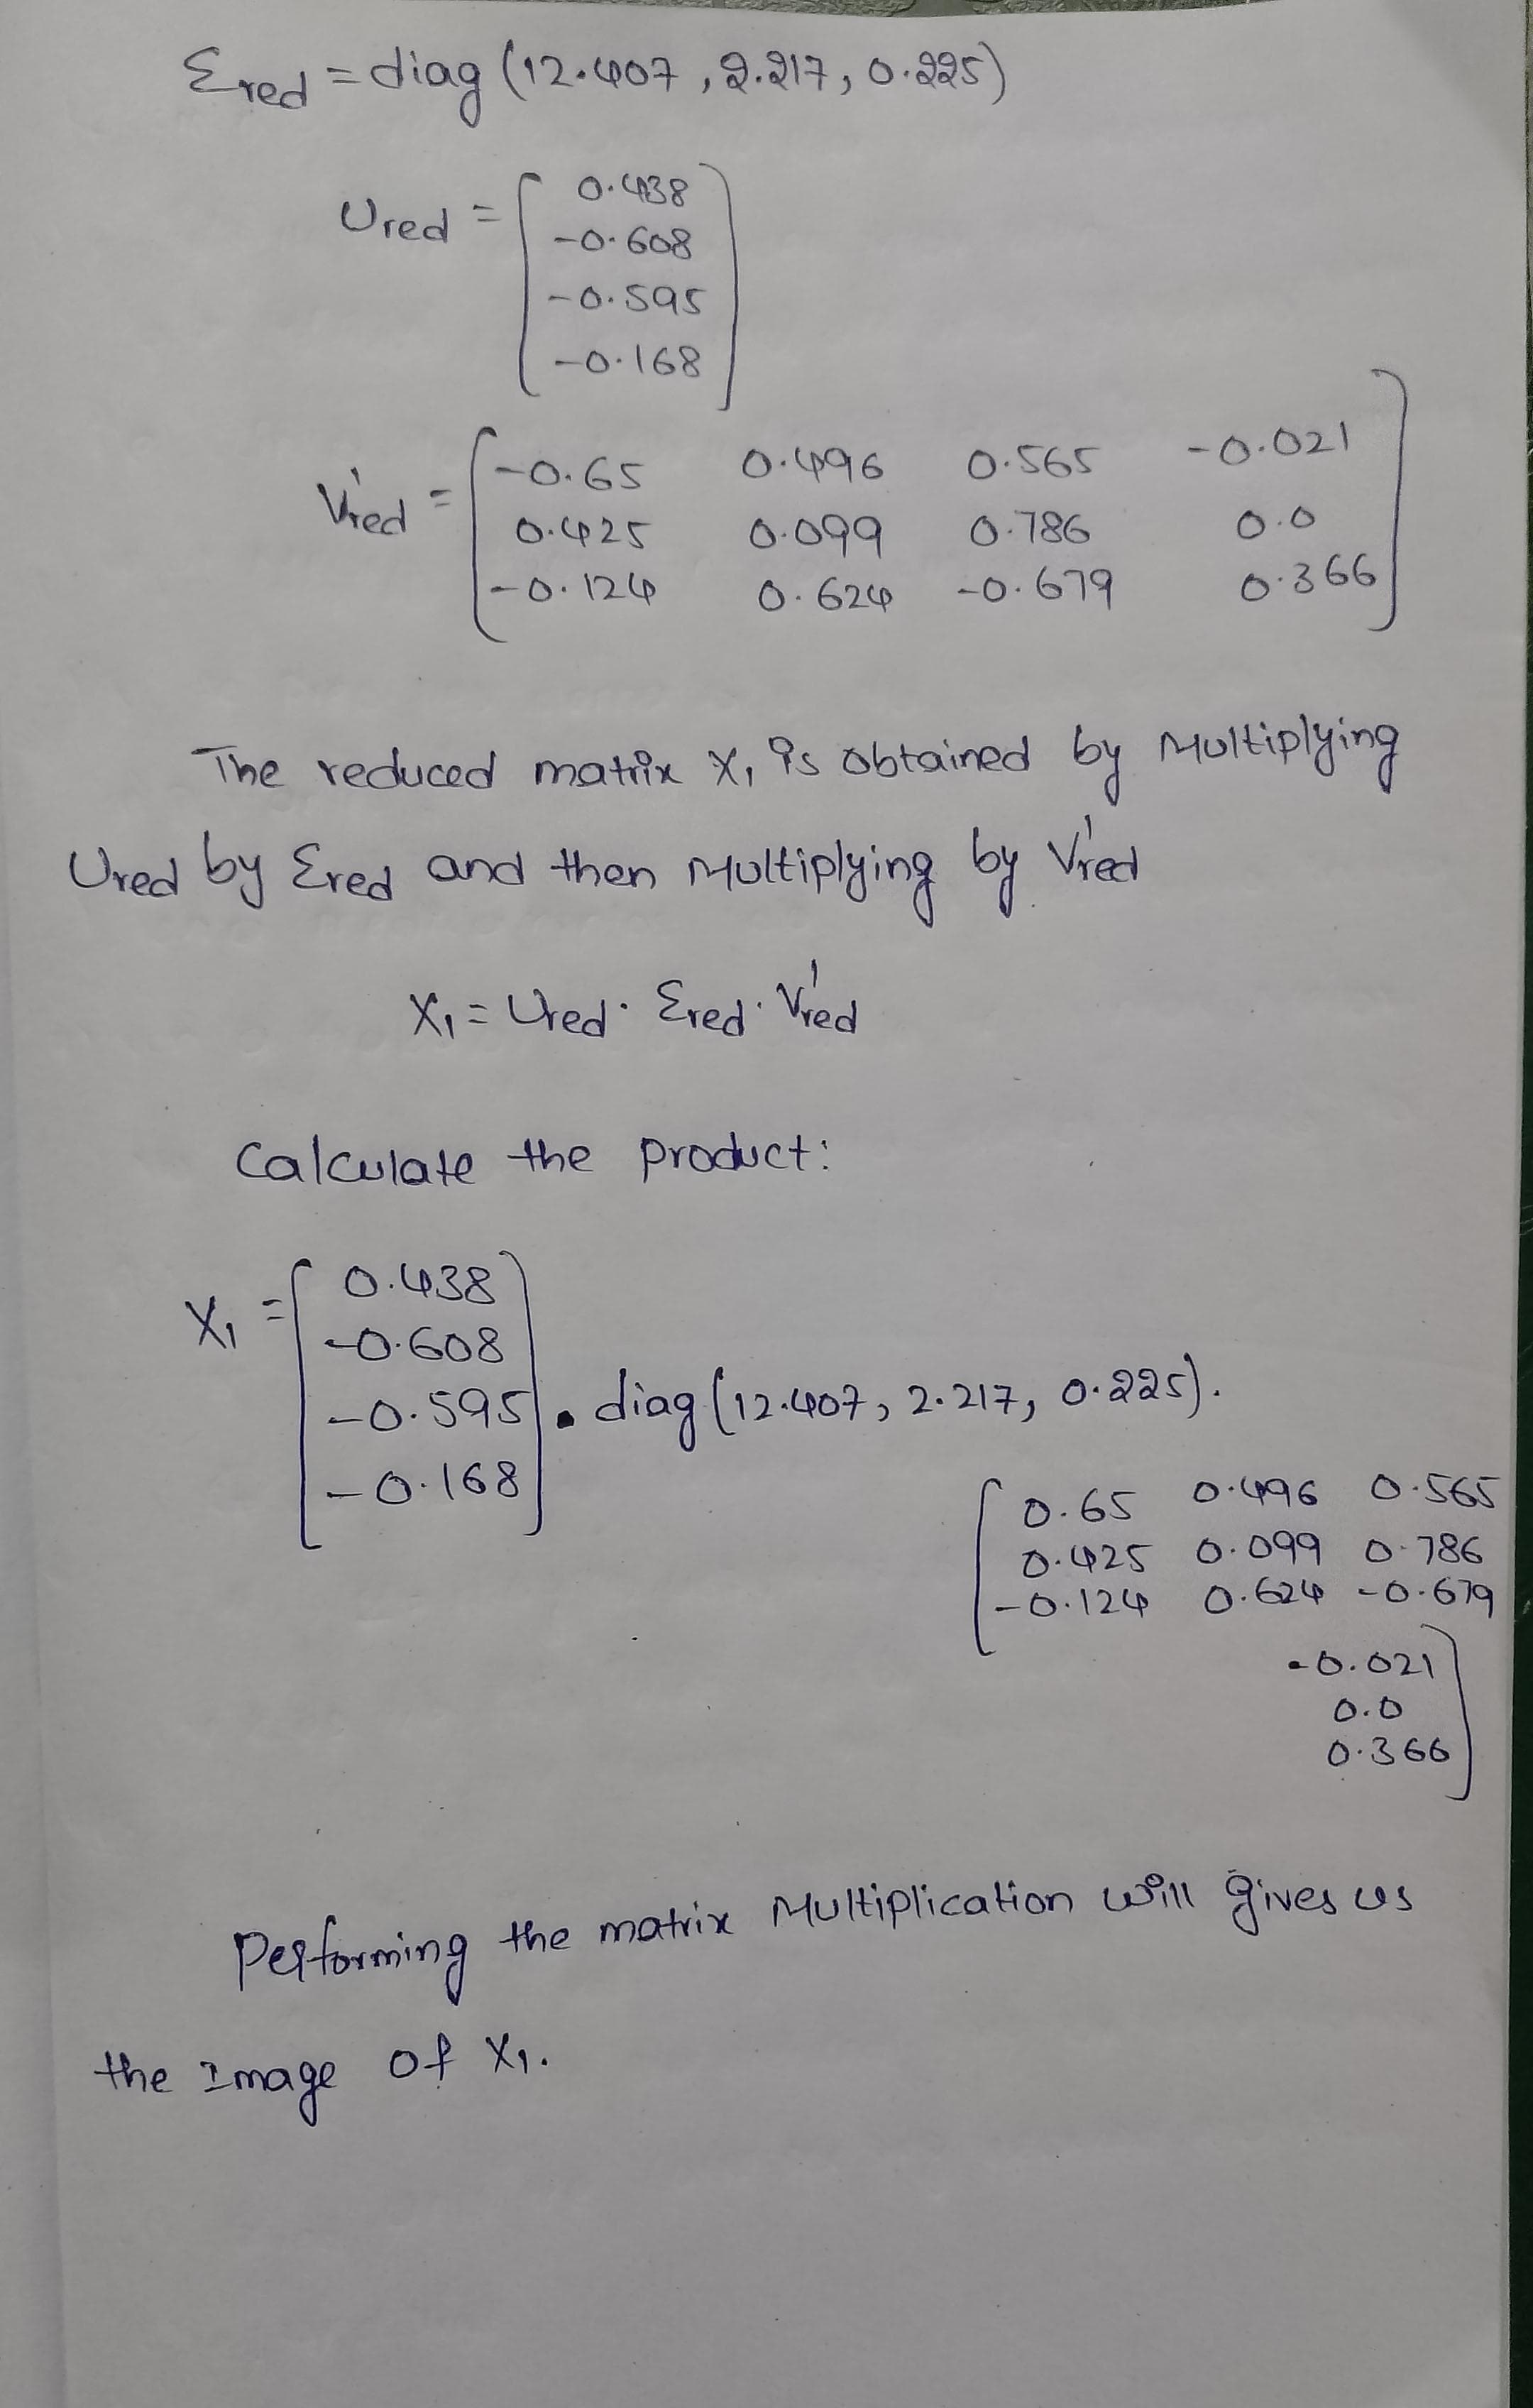 Σred = diag (12.407, 2.217, 0.225)
Ured = [ 0.438
-0.608
-0.595
-0.168 ]
V'red = [ -0.65 0.496 0.565 -0.021
0.425 0.099 0.786 0.0
-0.124 0.624 -0.679 0.366 ]
The reduced matrix X₁ is obtained by Multiplying
Ured by Σred and then Multiplying by V'red
X₁ = Ured · Σred · V'red
Calculate the product:
X₁ = [ 0.438
-0.608
-0.595
-0.168 ] . diag (12.407, 2.217, 0.225).
[ 0.65 0.496 0.565
0.425 0.099 0.786
-0.124 0.624 -0.679
-0.021
0.0
0.366 ]
Performing the matrix Multiplication will gives us
the Image of X₁.